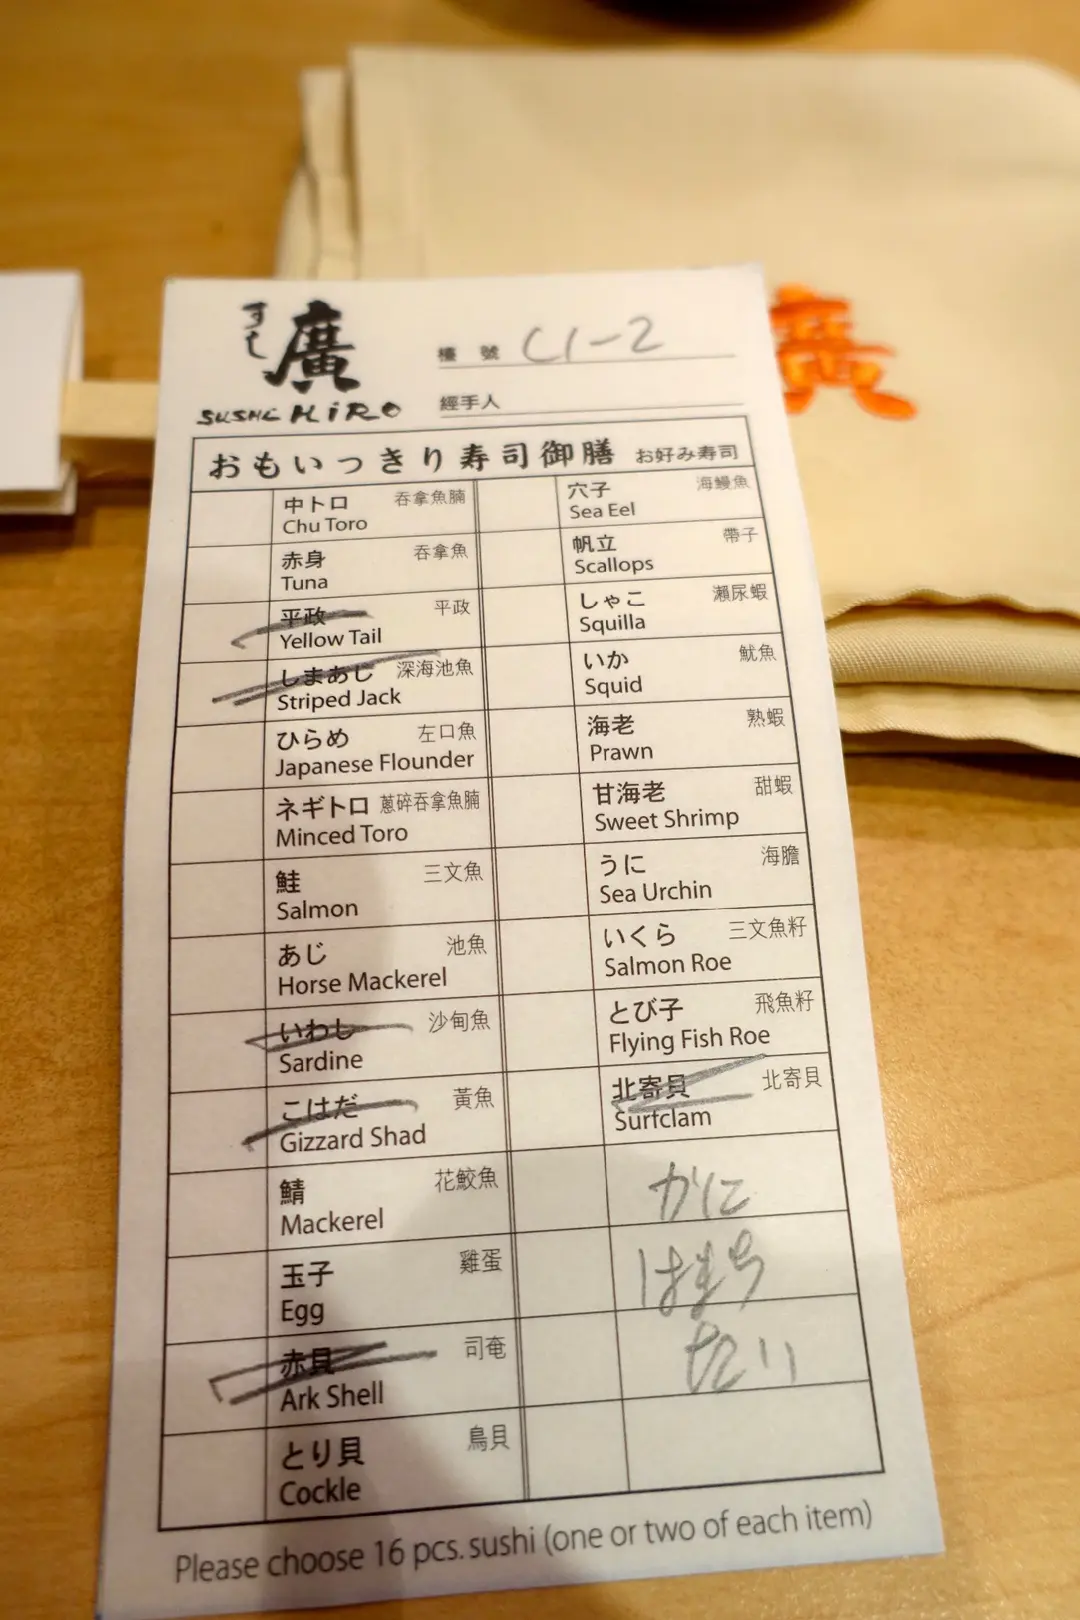 すし
廣
SUSHI HiRO
檯 號 C1-2
經手人
おもいっきり寿司御膳 お好み寿司
中トロ 吞拿魚腩
Chu Toro
赤身 吞拿魚
Tuna
平政 平政
Yellow Tail
しまあじ 深海池魚
Striped Jack
ひらめ 左口魚
Japanese Flounder
ネギトロ 蔥碎吞拿魚腩
Minced Toro
鮭 三文魚
Salmon
あじ 池魚
Horse Mackerel
いわし 沙甸魚
Sardine
こはだ 黃魚
Gizzard Shad
鯖 花鮫魚
Mackerel
玉子 雞蛋
Egg
赤貝 司奄
Ark Shell
とり貝 鳥貝
Cockle
穴子 海鰻魚
Sea Eel
帆立 帶子
Scallops
しゃこ 瀨尿蝦
Squilla
いか 魷魚
Squid
海老 熟蝦
Prawn
甘海老 甜蝦
Sweet Shrimp
うに 海膽
Sea Urchin
いくら 三文魚籽
Salmon Roe
とび子 飛魚籽
Flying Fish Roe
北寄貝 北寄貝
Surfclam
かに
はまち
たい
Please choose 16 pcs. sushi (one or two of each item)
廣